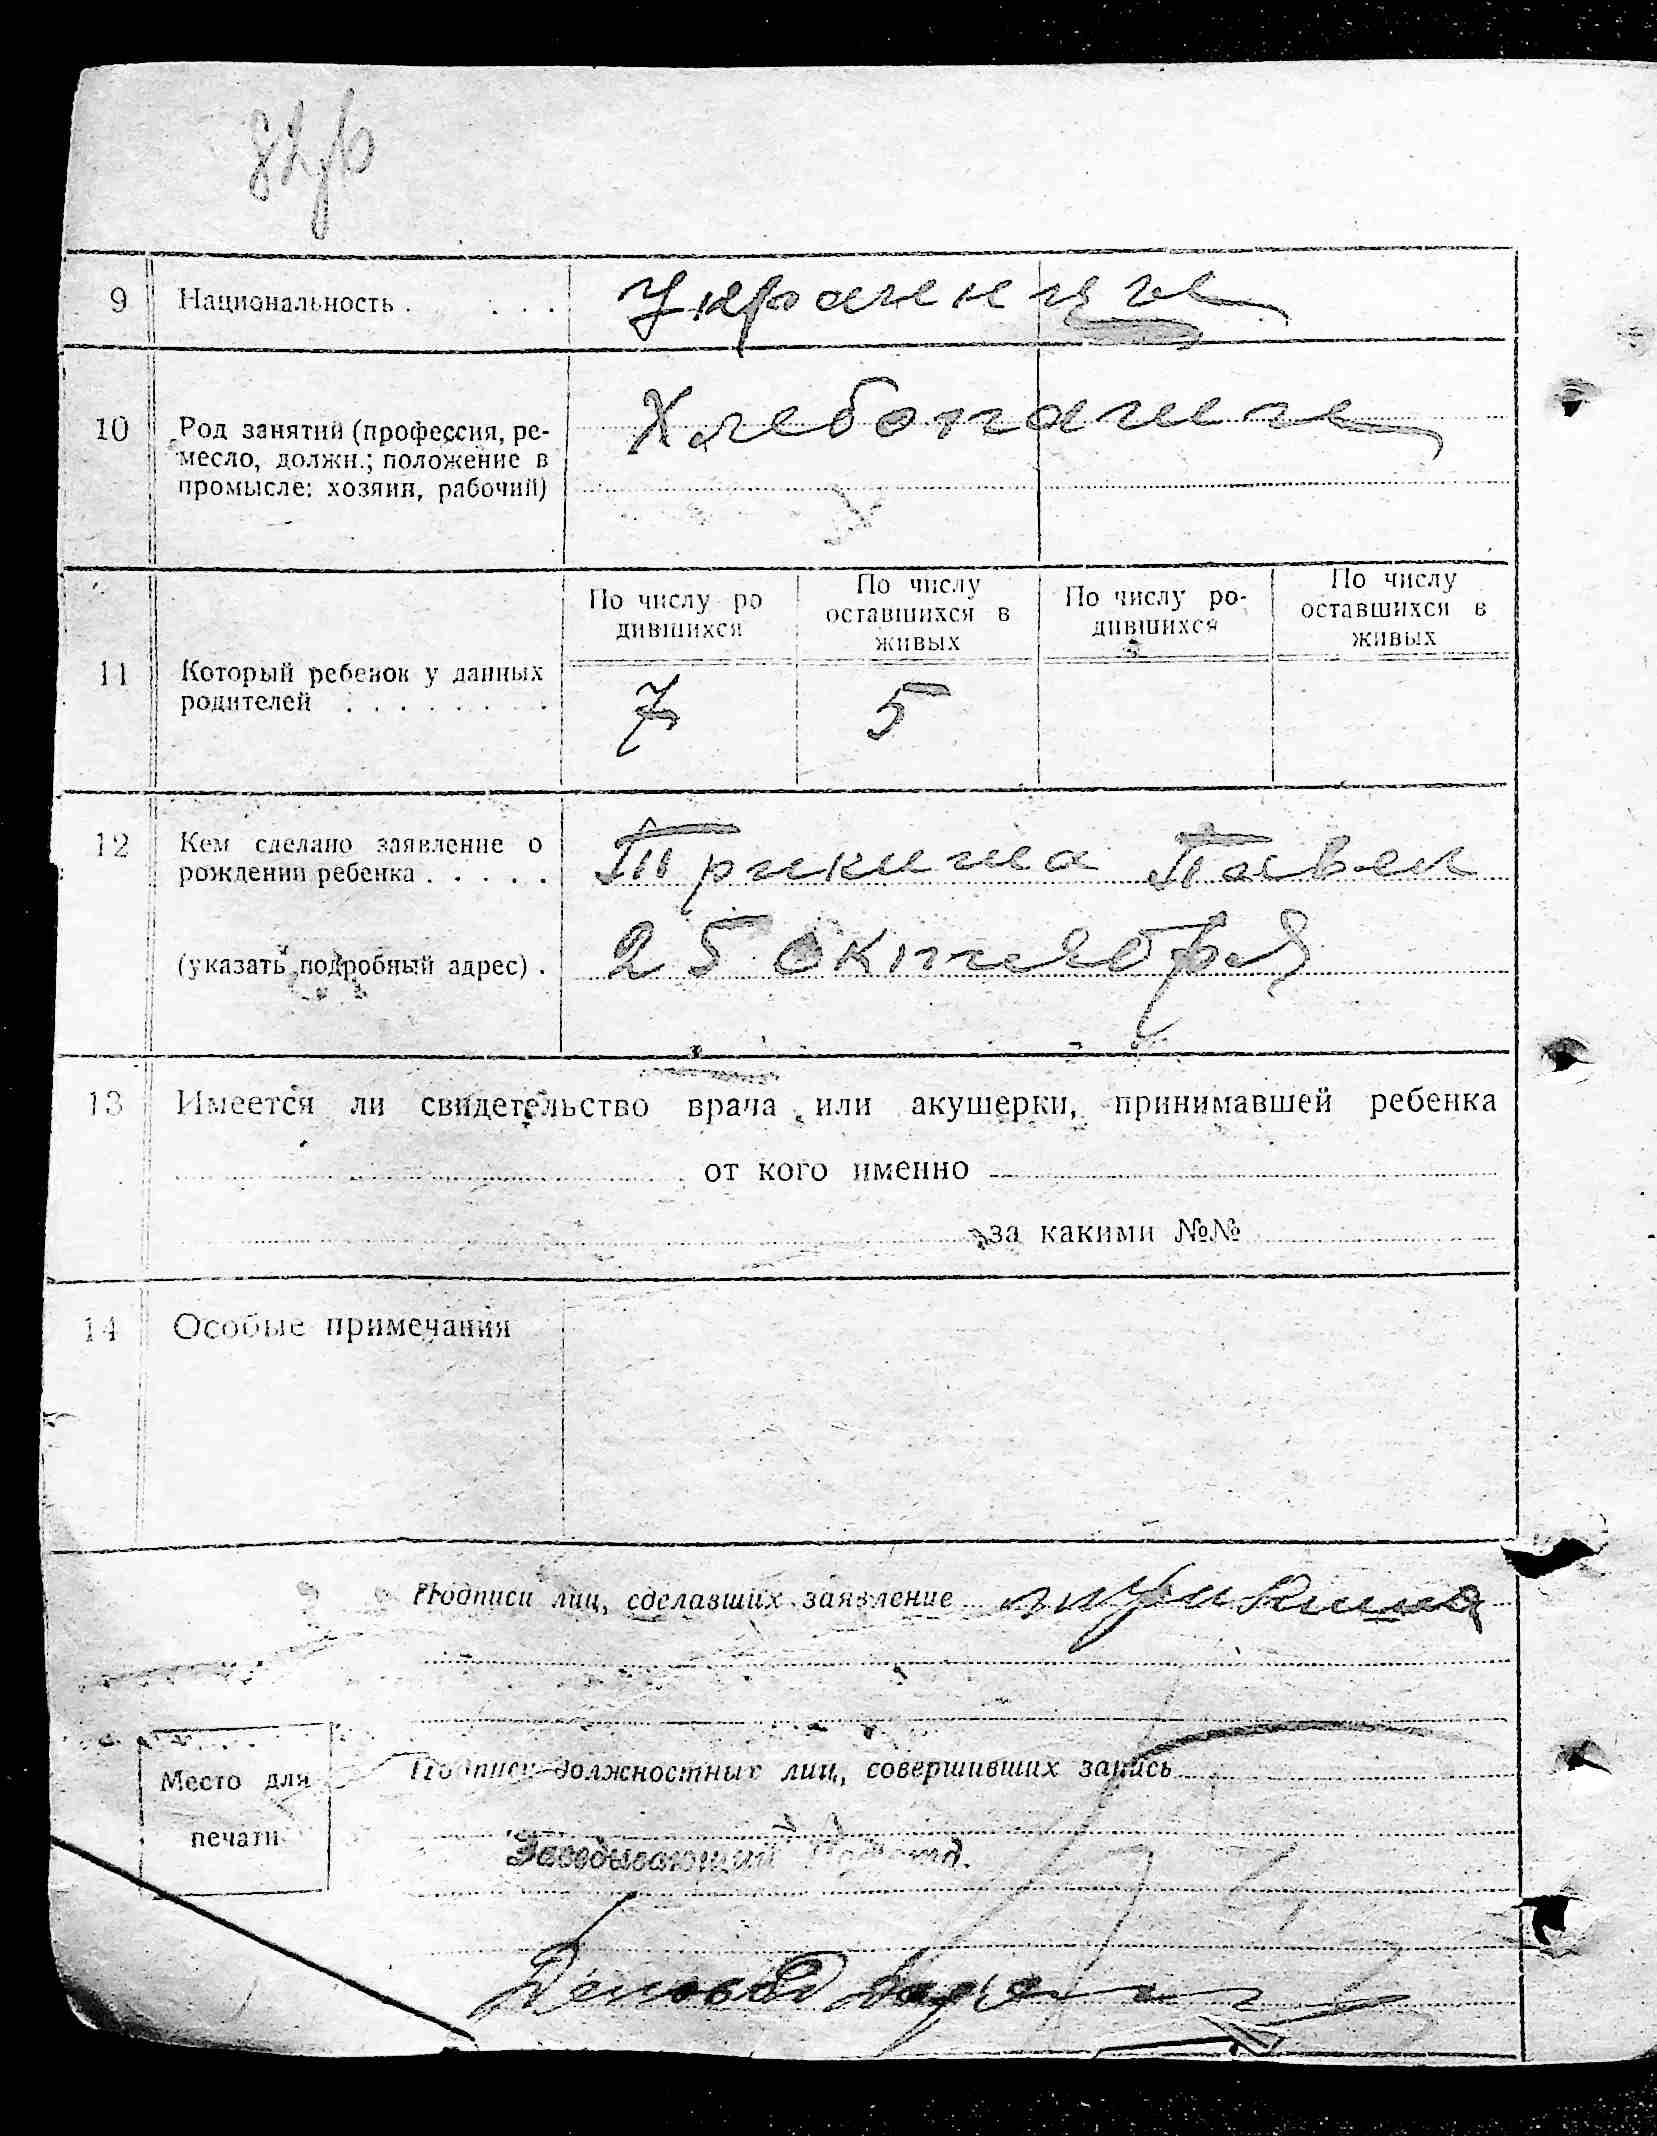 9 Национальность . . . . Украинцы
10 Род занятий (профессия, ре-
месло, должн.; положение в
промысле: хозяин, рабочий)
Хлебопашцы
По числу ро
дившихся
По числу
оставшихся в
живых
По числу ро-
дившихся
По числу
оставшихся в
живых
11 Который ребенок у данных
родителей . . . . . . . .
7 5
12 Кем сделано заявление о
рождении ребенка . . . . .
Трикиша Павел
(указать подробный адрес) .
25 Октября
13 Имеется ли свидетельство врача или акушерки, принимавшей ребенка
от кого именно
за какими №№
14 Особые примечания
Подписи лиц, сделавших заявление
Место для
печати
Подписи должностных лиц, совершивших запись
Заведывающий
Деловод